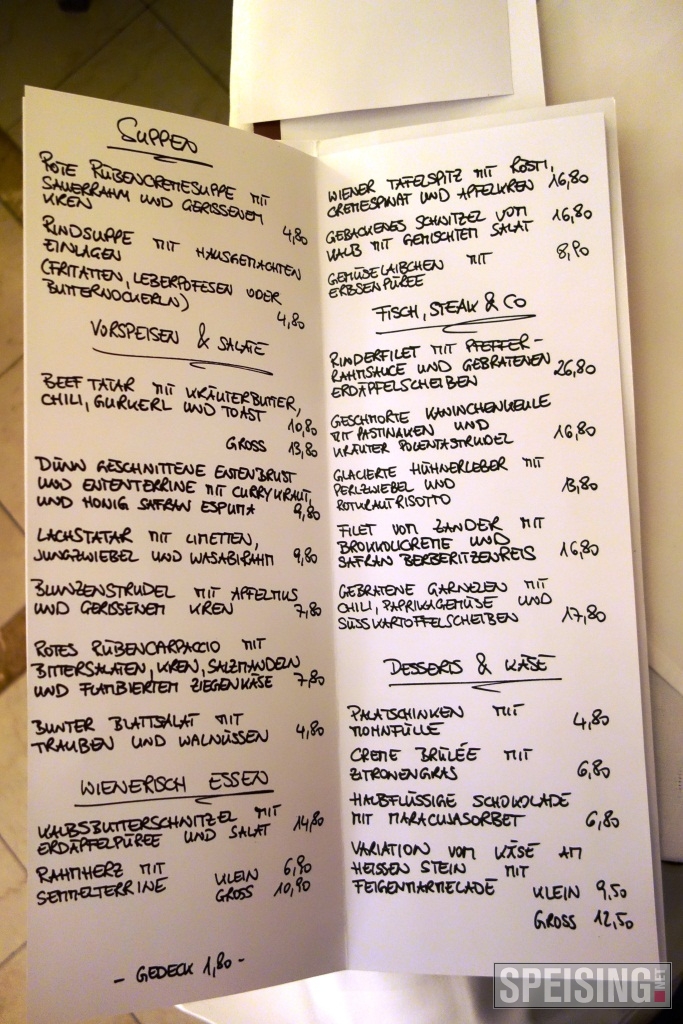 SUPPEN
ROTE RÜBENCREMESUPPE MIT
SAUERRAHM UND GERISSENEM
KREN 4,80
RINDSUPPE MIT HAUSGEMACHTEN
EINLAGEN
(FRITATTEN, LEBERPOFESEN ODER
BUTTERNOCKERLN) 4,80
VORSPEISEN & SALATE
BEEF TATAR MIT KRÄUTERBUTTER,
CHILI, GURKERL UND TOAST 10,80
GROSS 13,80
DÜNN GESCHNITTENE ENTENBRUST
UND ENTENTERRINE MIT CURRYKRAUT,
UND HONIG SAFRAN ESPUMA 9,80
LACHSTATAR MIT LIMETTEN,
JUNGZWIEBEL UND WASABIRAHM 9,80
BLUNZENSTRUDEL MIT APFELMUS
UND GERISSENEM KREN 7,80
ROTES RÜBENCARPACCIO MIT
BITTERSALATEN, KREN, SALZMANDELN
UND FLAMBIERTEM ZIEGENKÄSE 7,80
BUNTER BLATTSALAT MIT
TRAUBEN UND WALNÜSSEN 4,80
WIENERISCH ESSEN
KALBSBUTTERSCHNITZEL MIT
ERDÄPFELPÜREE UND SALAT 14,80
RAHMHERZ MIT KLEIN 6,90
SEMMELTERRINE GROSS 10,90
- GEDECK 1,80 -
WIENER TAFELSPITZ MIT RÖSTI,
CREMESPINAT UND APFELKREN 16,80
GEBACKENES SCHNITZEL VOM
KALB MIT GEMISCHTEM SALAT 16,80
GEMÜSELAIBCHEN MIT
ERBSENPÜREE 8,90
FISCH, STEAK & CO
RINDERFILET MIT PFEFFER-
RAHMSAUCE UND GEBRATENEN
ERDÄPFELSCHEIBEN 26,80
GESCHMORTE KANINCHENKEULE
MIT PASTINAKEN UND
KRÄUTER POLENTASTRUDEL 16,80
GLACIERTE HÜHNERLEBER MIT
PERLZWIEBEL UND
ROTKRAUTRISOTTO 13,80
FILET VOM ZANDER MIT
BROKKOLICREME UND
SAFRAN BERBERITZENREIS 16,80
GEBRATENE GARNELEN MIT
CHILI, PAPRIKAGEMÜSE UND
SÜSSKARTOFFELSCHEIBEN 17,80
DESSERTS & KÄSE
PALATSCHINKEN MIT
MOHNFÜLLE 4,80
CREME BRÛLÉE MIT
ZITRONENGRAS 6,80
HALBFLÜSSIGE SCHOKOLADE
MIT MARACUJASORBET 6,80
VARIATION VOM KÄSE AM
HEISSEN STEIN MIT
FEIGENMARMELADE KLEIN 9,50
GROSS 12,50
SPEISING.NET